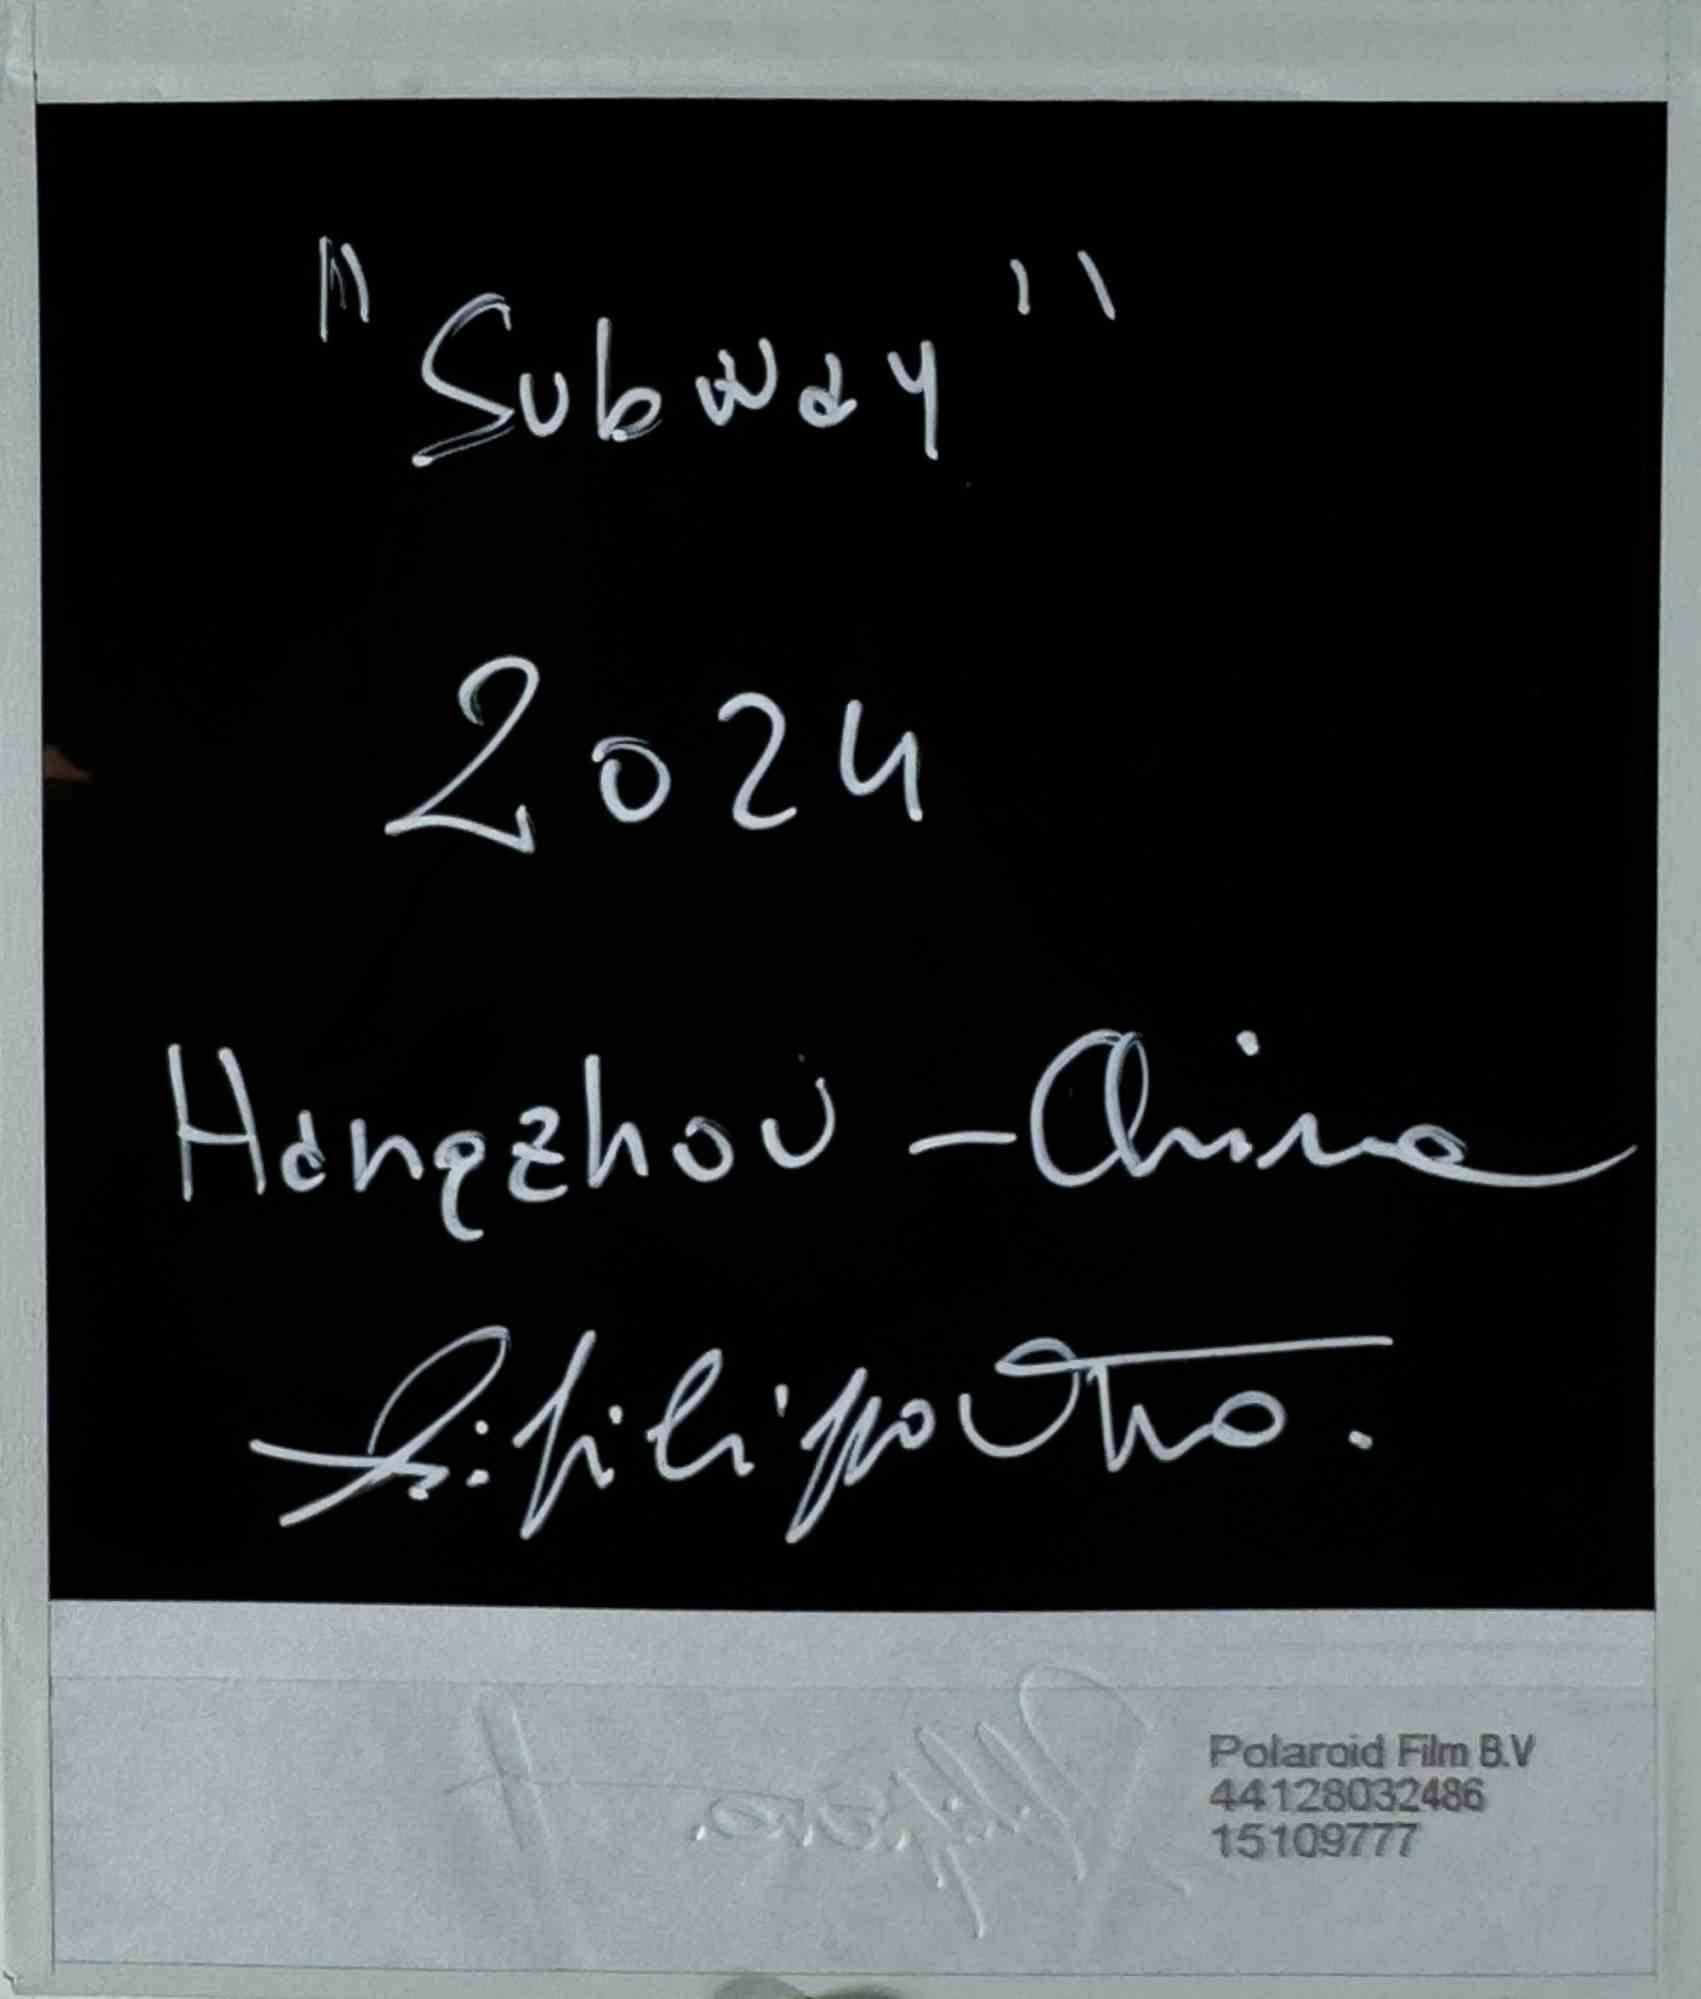 "Subway"
2024
Hangzhou - China
Polaroid Film B.V
44128032486
15109777